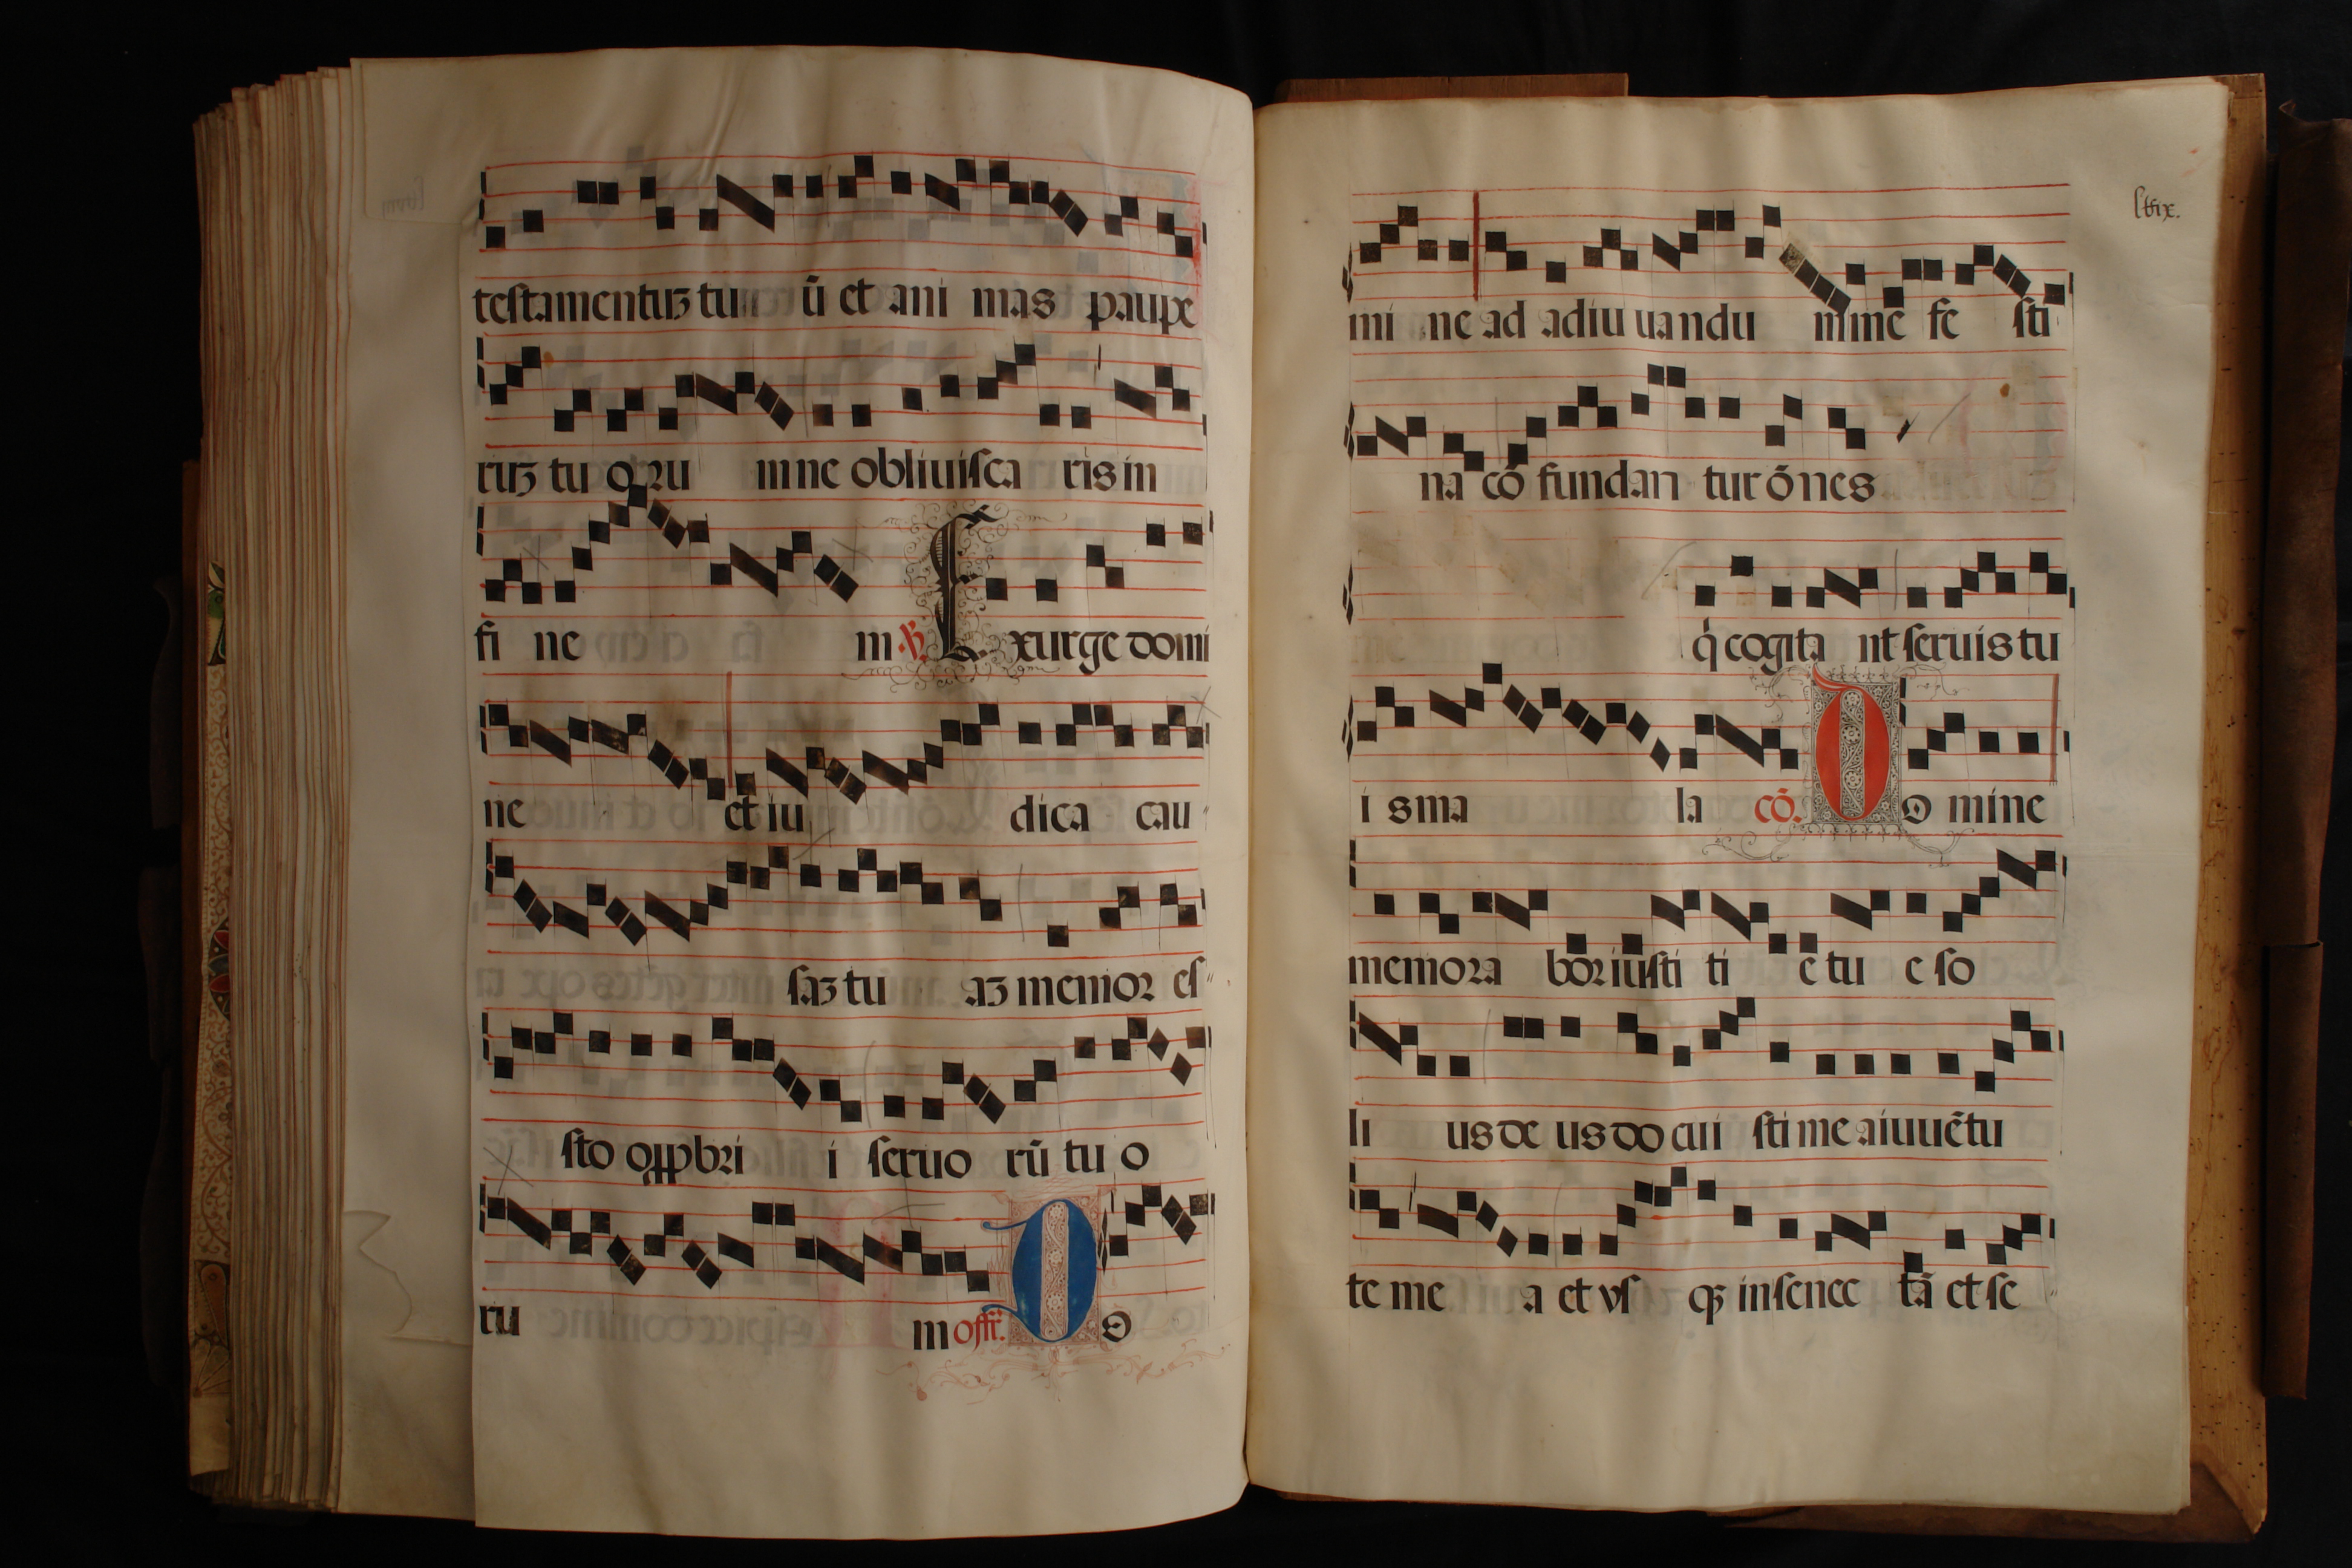 testamentuꝫ tu ū et ani mas paupe
ruꝫ tu oꝝu m ne obliuisca ris in
fi ne m ℣. Exurge domi
ne et iu dica cau
saꝫ tu aꝫ memor es
sto oppbri i seruo rū tu o
ru m offr̄. Do
lxix.
mi ne ad adiu uandu m me fe sti
na cō fundan tur ōnes
q̇ cogita nt seruis tu
i s ma la cō. Domine
memora bor iusti ti e tu e so
li us de us do cui sti me a iuuētu
te me a et vs qꝫ in senec tā et se